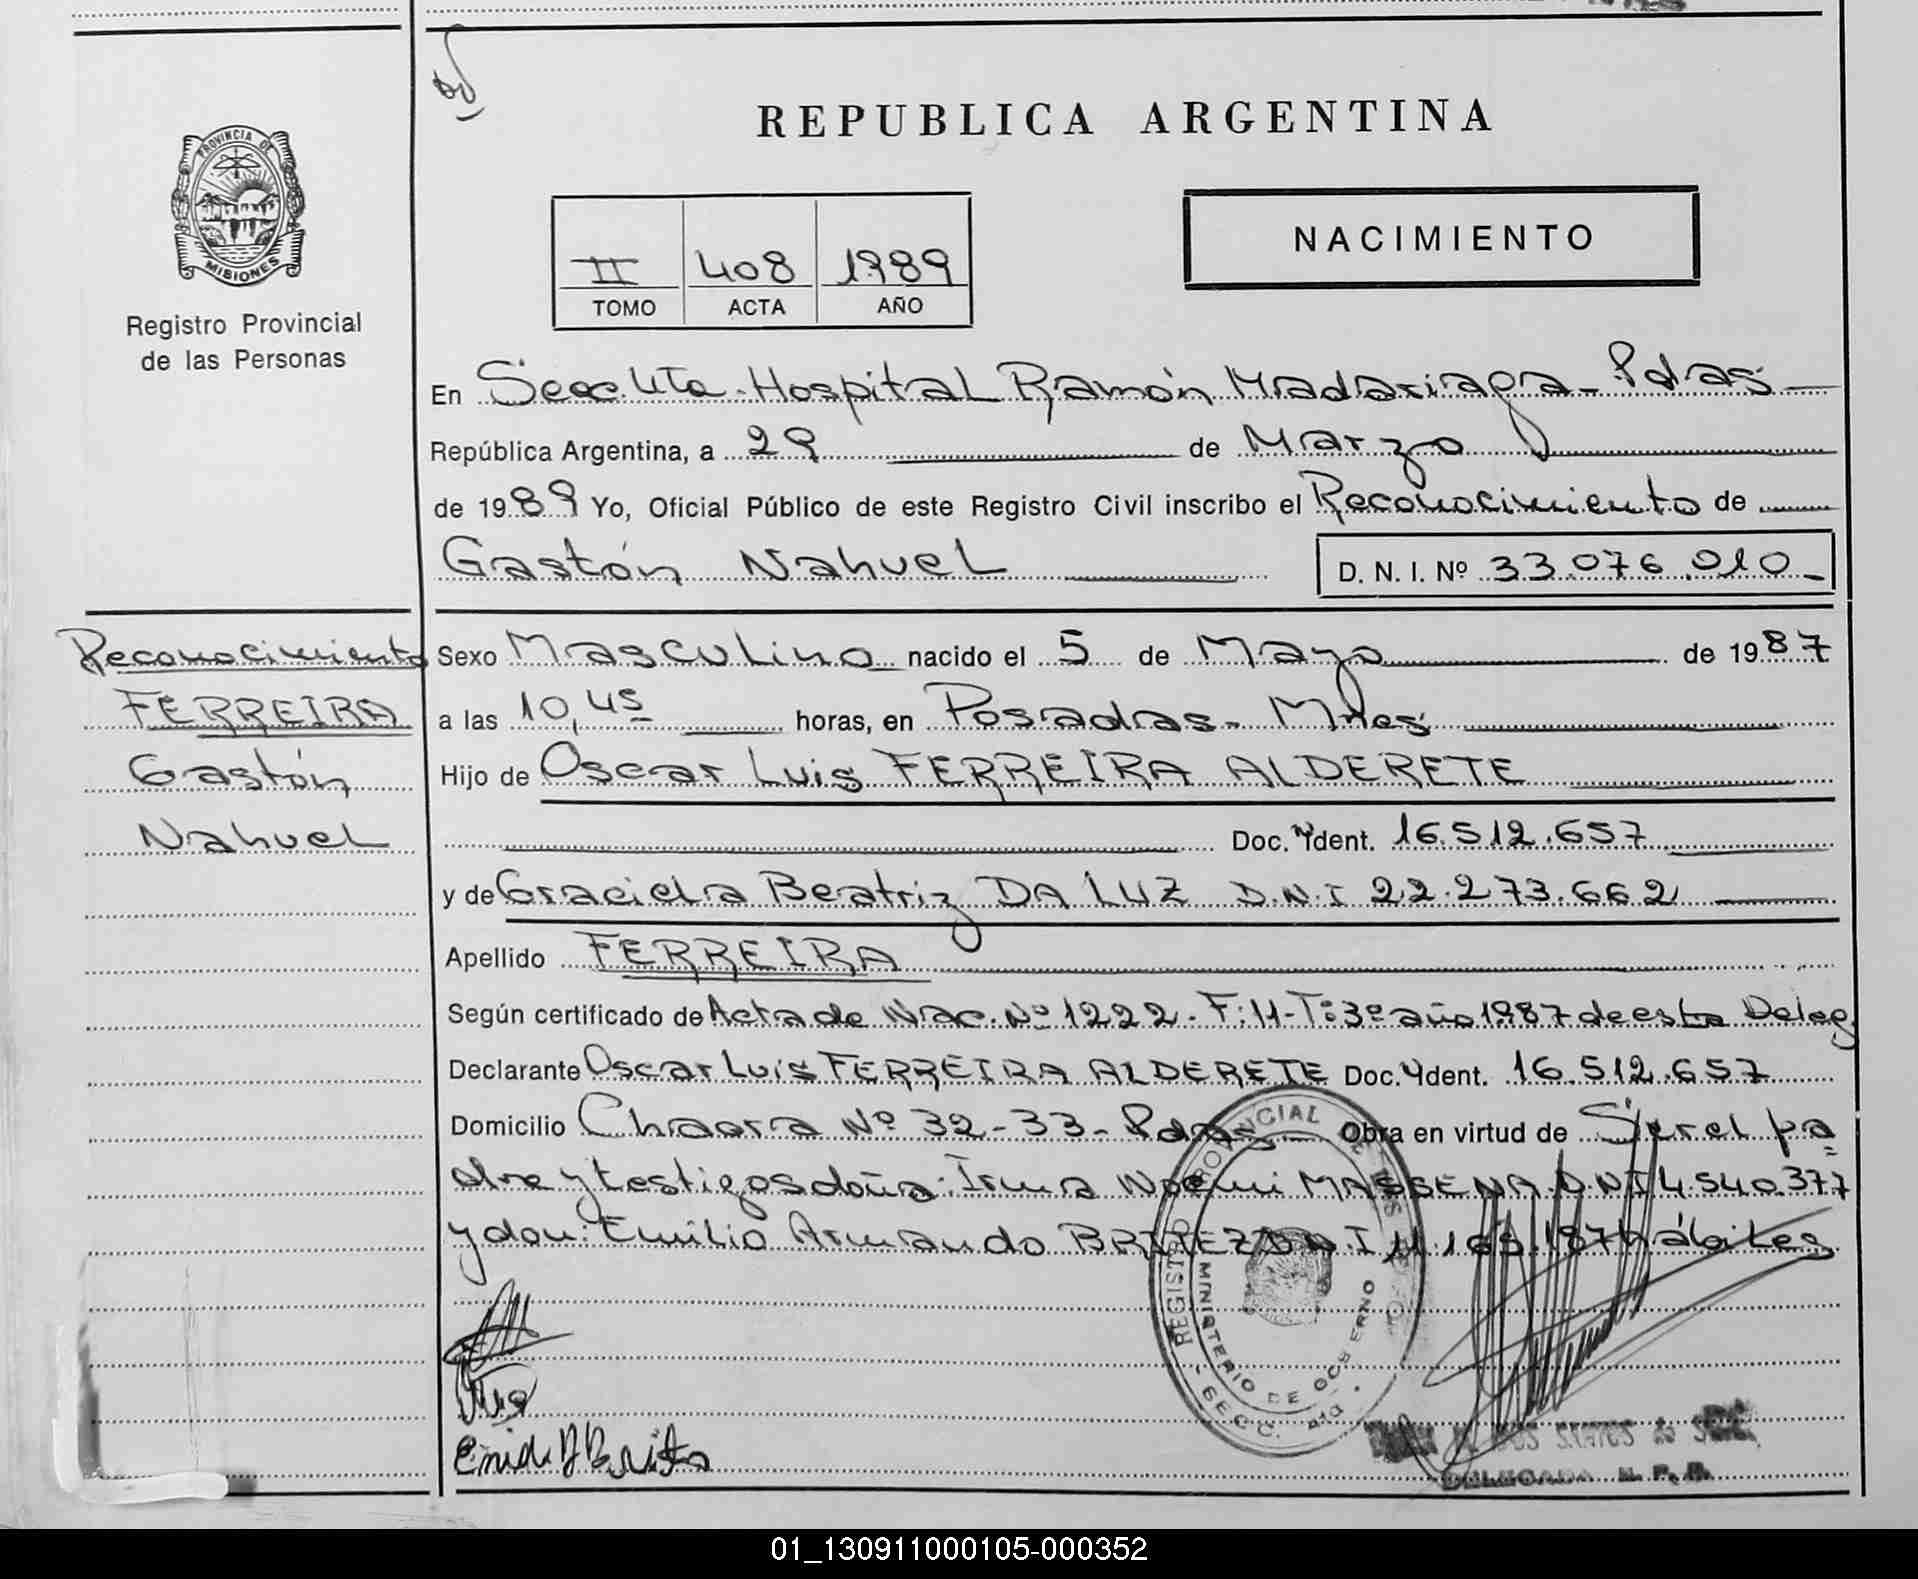 REPUBLICA ARGENTINA
PROVINCIA DE
MISIONES
Registro Provincial
de las Personas
II 408 1989
TOMO ACTA AÑO
NACIMIENTO
En Secc 4ta. Hospital Ramón Madariaga - Pdas
República Argentina, a 29 de Marzo
de 1989 Yo, Oficial Público de este Registro Civil inscribo el Reconocimiento de
Gastón Nahuel D. N. I. Nº 33.076.010
Reconocimiento
FERREIRA
Gastón
Nahuel
Sexo Masculino nacido el 5 de Mayo de 1987
a las 10,45 horas, en Posadas - Mnes
Hijo de Oscar Luis FERREIRA ALDERETE
Doc. Ydent. 16.512.657
y de Graciela Beatriz DA LUZ D.N.I 22.273.662
Apellido FERREIRA
Según certificado de Acta de Nac. Nº 1222. F: 11 - T: 3º año 1987 de esta Deleg
Declarante Oscar Luis FERREIRA ALDERETE Doc. Ydent. 16.512.657
Domicilio Chacra Nº 32-33- Pdas Obra en virtud de Ser el pa
dre y testigos doña: Irma Noemi MASSENA D.N.I 4.540.377
y don: Emilio Armando BRITEZ D.N.I 11.169.187 hábiles
REGISTRO PROVINCIAL DE
MINISTERIO DE GOBIERNO
SECC. 4ta.
DOS SANTOS de
DELEGADA R. P. P.
01_130911000105-000352